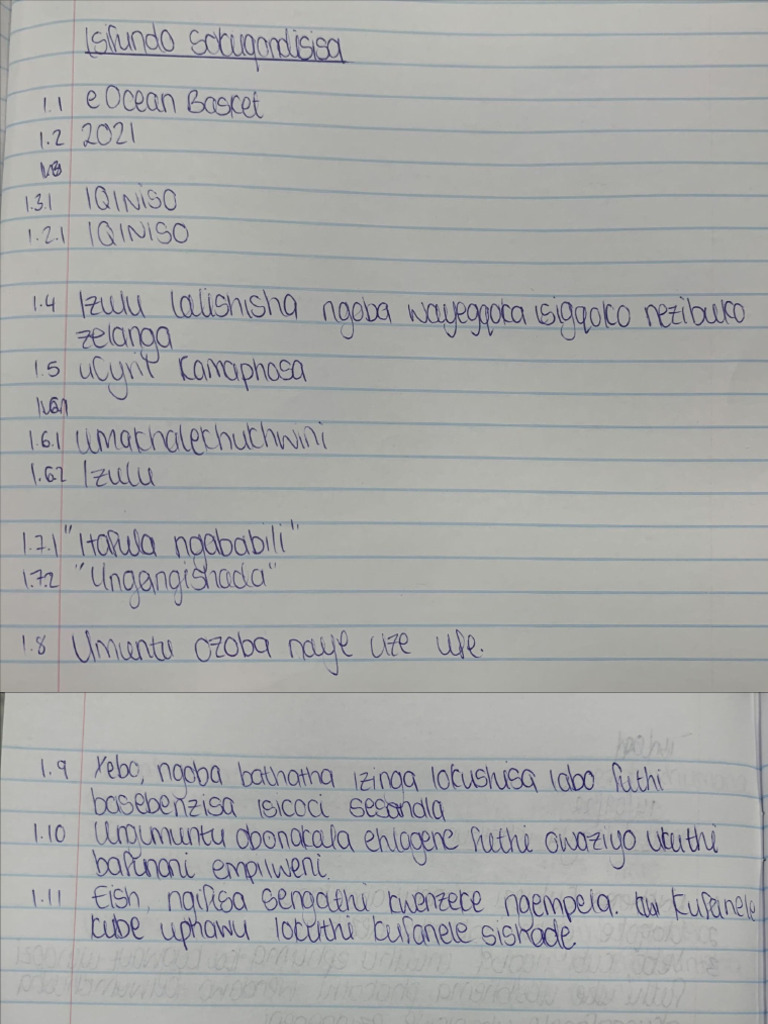 Isifundo Sokuqondisisa
1.1 eOcean Basket
1.2 2021
1.3.1 IQINISO
1.2.1 IQINISO
1.4 Izulu lalishisha ngoba wayegqoka isigqoko nezibuko
zelanga
1.5 uCyril Kamaphosa
1.6.1 Umakhalekhukhwini
1.6.2 Izulu
1.7.1 "Itafula ngababili"
1.7.2 "Ungangishada"
1.8 Umuntu ozoba naye uze ufe.
1.9 Yebo, ngoba bathatha izinga lokushisa labo futhi
basebenzisa isicoci sesandla
1.10 Ungumuntu obonakala ehlogene futhi owaziyo ukuthi
bafunani empilweni.
1.11 Eish, ngifisa sengathi kwenzeke ngempela. Kufanele
kube uphawu lokuthi kufanele sishade.